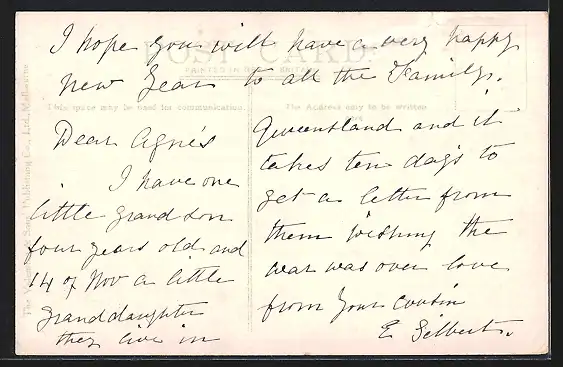 I hope you will have a very happy
New Year to all the Family.
POST CARD.
PRINTED IN GREAT BRITAIN
This space may be used for communication.
The Address only to be written
Dear Agnes
I have one
little grand son
four years old and
14 of Nov a little
granddaughter
they live in
Queensland and it
takes ten days to
get a letter from
them wishing the
war was over love
from your cousin
E Gilbert.